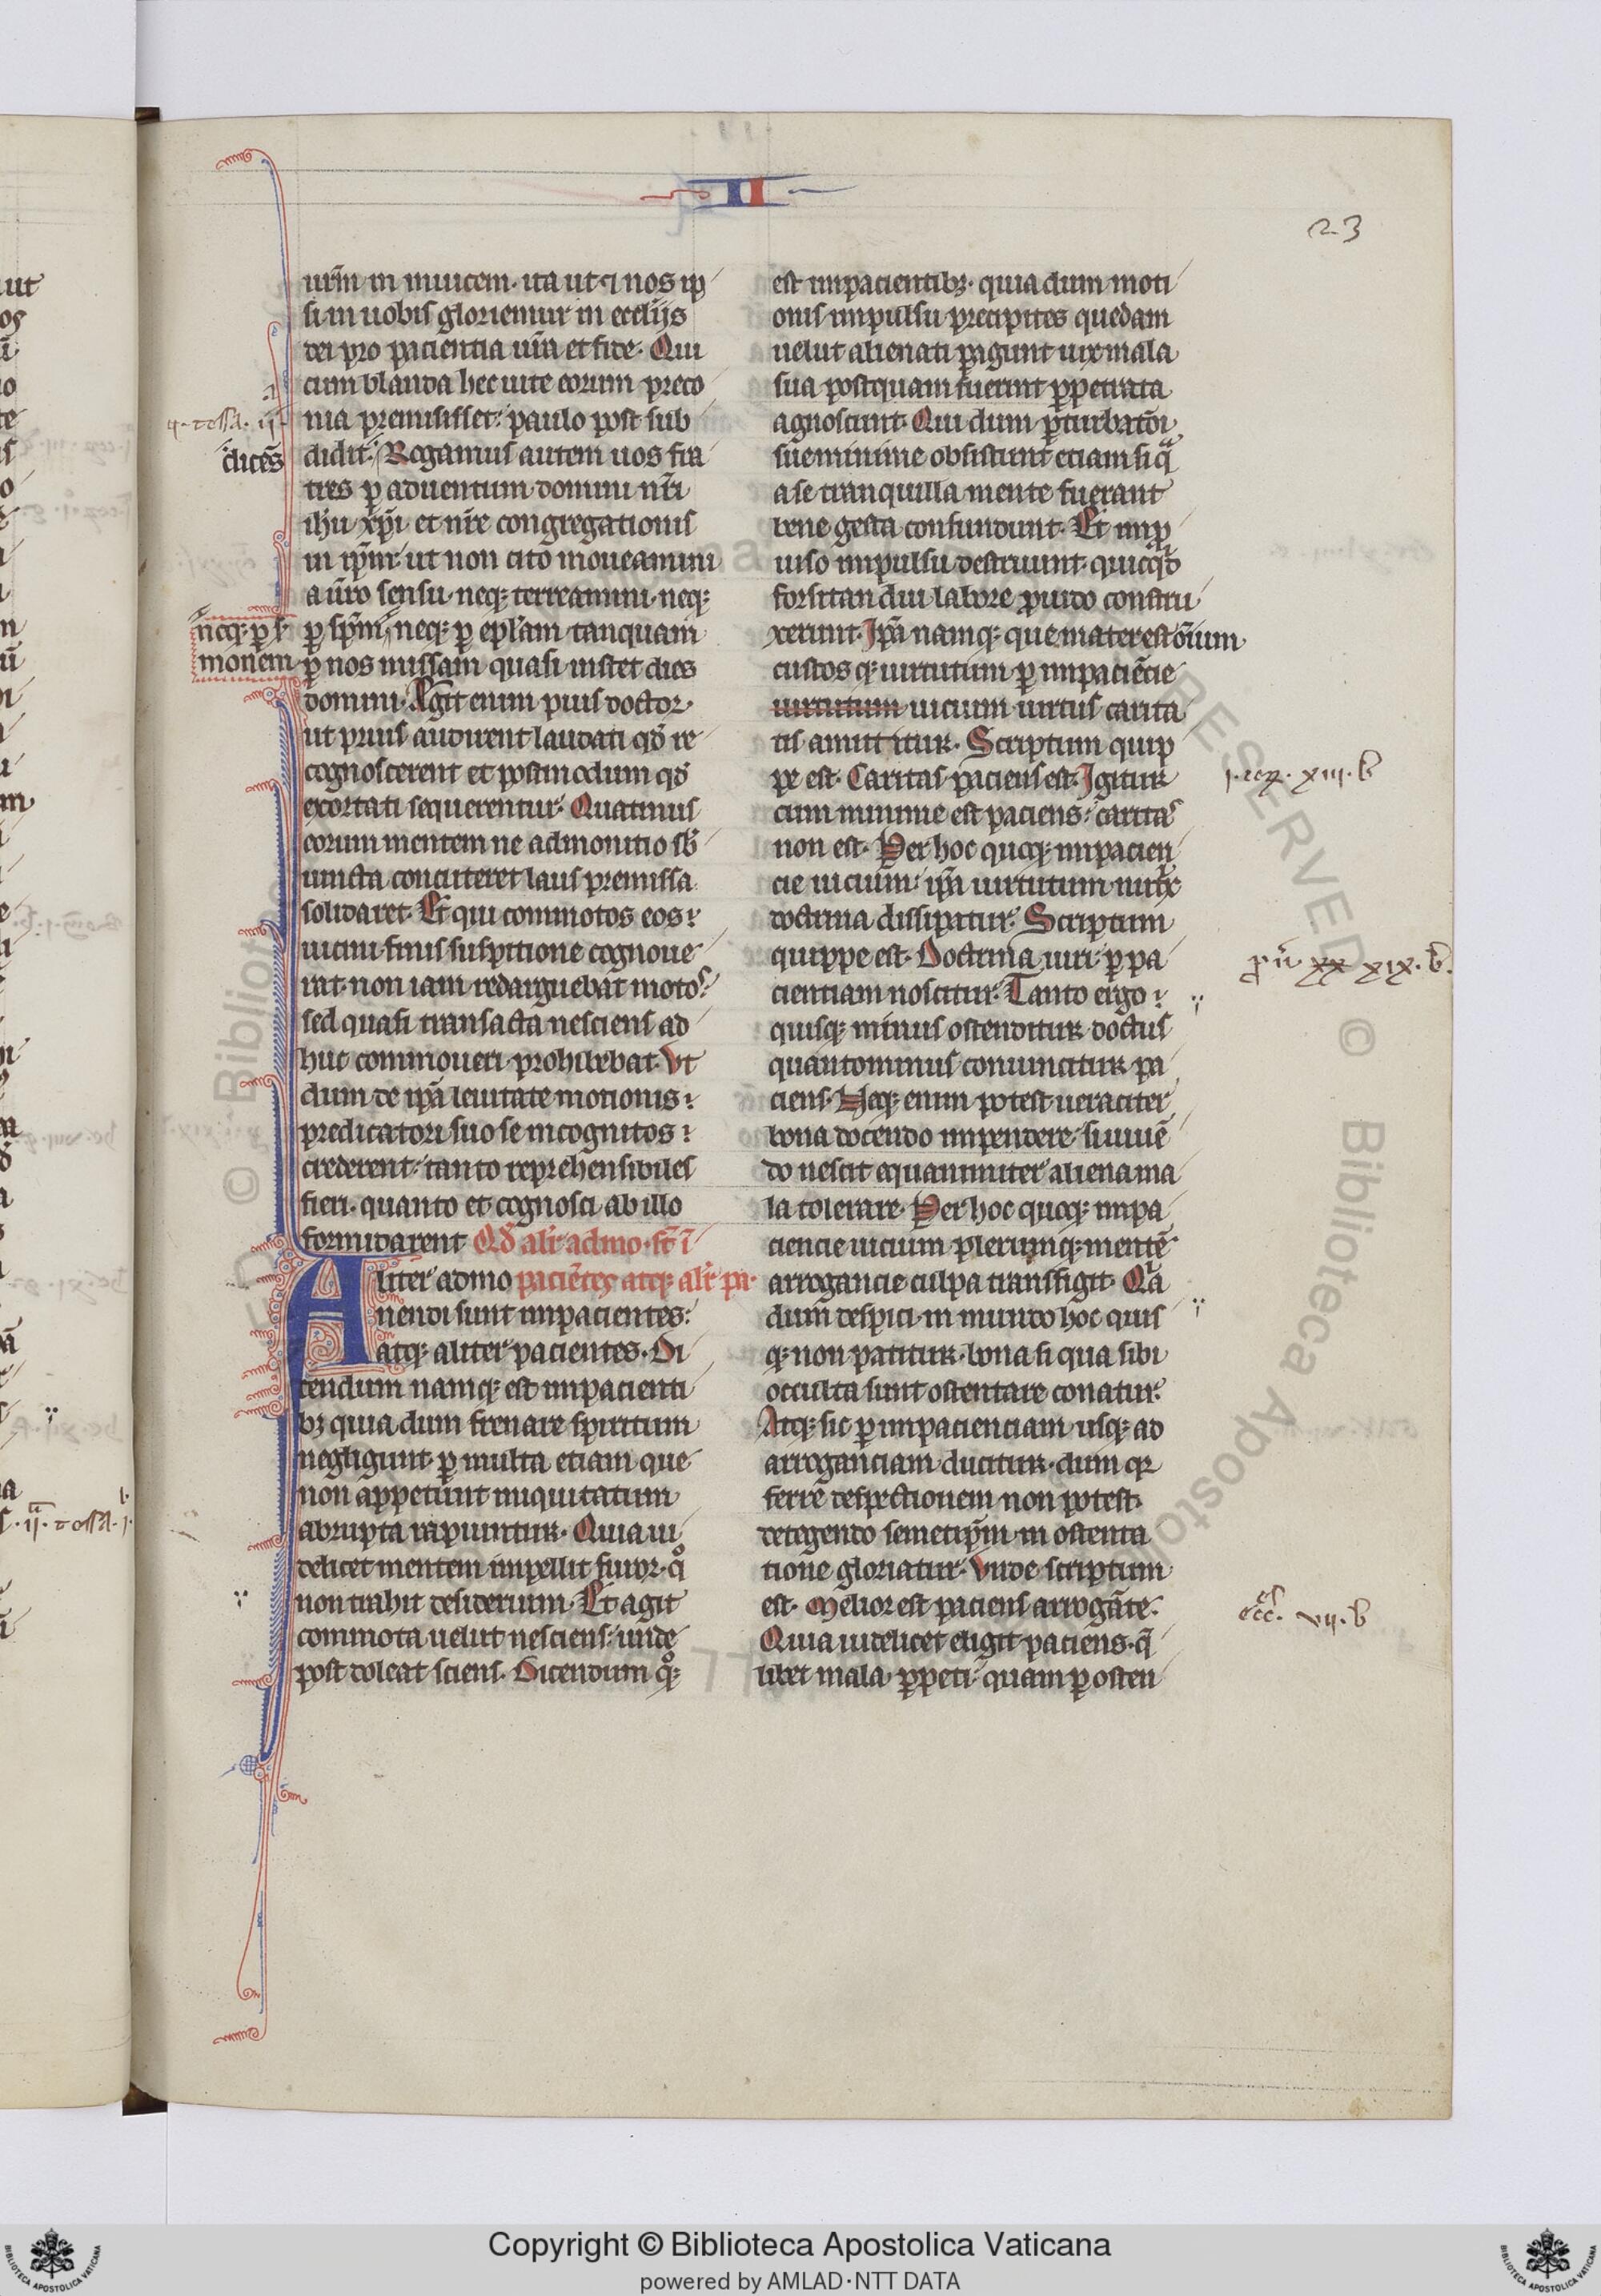 II
23
ur̄m in inuicem. ita ut ⁊ nos ip
si in uobis gloriemur in eccl̄ijs
dei pro pacientia ur̄a et fide. Qui
cum blanda hec uite eorum preco
nia premisisset. paulo post sub
didit. Rogamus autem uos fra
tres ꝑ aduentum domini nr̄i
ih̄u xp̄i et nr̄e congregationis
in ip̄m. ut non cito moueamini
a ur̄o sensu. neqꝫ terreamini. neqꝫ
ꝑ sp̄m, neqꝫ ꝑ epl̄am tanquam
ꝑ nos missam quasi instet dies
domini. Agit enim pius doctor
ut prius audirent laudati qd̄ re
cognoscerent et postmodum qd̄
exortati sequerentur. Quatinus
eorum mentem ne admonitio sb̄
iuncta concuteret laus premissa
solidaret. Et qui commotos eos
uicini finis suspitione cognoue
rat. non iam redarguebat motos
sed quasi transacta nesciens ad
huc commoueri prohibebat. Vt
dum de ip̄a leuitate motionis
predicatori suo se incognitos
crederent. tanto reprehensibiles
fieri. quanto et cognosci ab illo
formidarent Qd̄ alit̄ admo. st̄ ī
Aliter admo paciētes atqꝫ alit̄ pa.
nendi sunt inpacientes.
atqꝫ aliter pacientes. Di
cendum namqꝫ est inpacienti
bꝫ quia dum frenare spiritum
negligunt. ꝑ multa etiam que
non appetunt iniquitatum
abrupta rapiuntur. Quia ui
delicet mentem impellit furor. qͦ
non trahit desiderium. Et agit
commota uelut nesciens. unde
post doleat sciens. Dicendum qͦꝫ
dicēs
neqꝫ ꝑ s̄
monem
est inpacientibꝫ. quia dum moti
onis inpulsu precipites quedam
uelut alienati ꝑagunt uix mala
sua postquam fuerint ꝑpetrata
agnoscunt. Qui dum ꝑturbatōi
sue minime obsistunt etiam si qᷓ
a se tranquilla mente fuerant
bene gesta confundunt. Et imp
uiso impulsu destruunt. quicqͥd
forsitan diu labore ꝓuido constru
xerunt. Ip̄a namqꝫ que mater est oīum
custos qꝫ uirtutum ꝑ inpaciēcie
uirtutum uicium uirtus carita
tis amittitur. Scriptum quip
pe est. Caritas paciens est. Igitur
cum minime est paciens. caritas
non est. Per hoc quoqꝫ inpacien
cie uicium. ip̄a uirtutum nutͥx
doctrina dissipatur. Scriptum
quippe est. Doctrina uiri. ꝑ pa
cientiam noscitur. Tanto ergo
quisqꝫ minus ostenditur doctus
quanto minus conuincitur pa
ciens. Neqꝫ enim potest ueraciter
bona docendo inpendere. si uiuē
do nescit equanimiter aliena ma
la tolerare. Per hoc quoqꝫ inpa
ciencie uicium plerumqꝫ mentē
arrogancie culpa transfigit. Qͥa
dum despici in mundo hoc quis
qꝫ non patitur. bona si qua sibi
occulta sunt ostentare conatur.
Atqꝫ sic ꝑ inpacienciam usqꝫ ad
arroganciam ducitur. dum qꝫ
ferre despectionem non potest.
detegendo semetip̄m in ostenta
tione gloriatur. Vnde scriptum
est. Melior est paciens arrogāte.
Quia uidelicet eligit paciens. q̄
libet mala ꝑpeti. quam ꝑ osten
xiii. b
xx xix. b.
vii. b
Copyright © Biblioteca Apostolica Vaticana
powered by AMLAD·NTT DATA